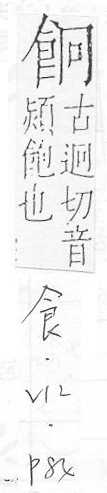 餉
古迥切音
熲飽也
食
·
V12
·
P84